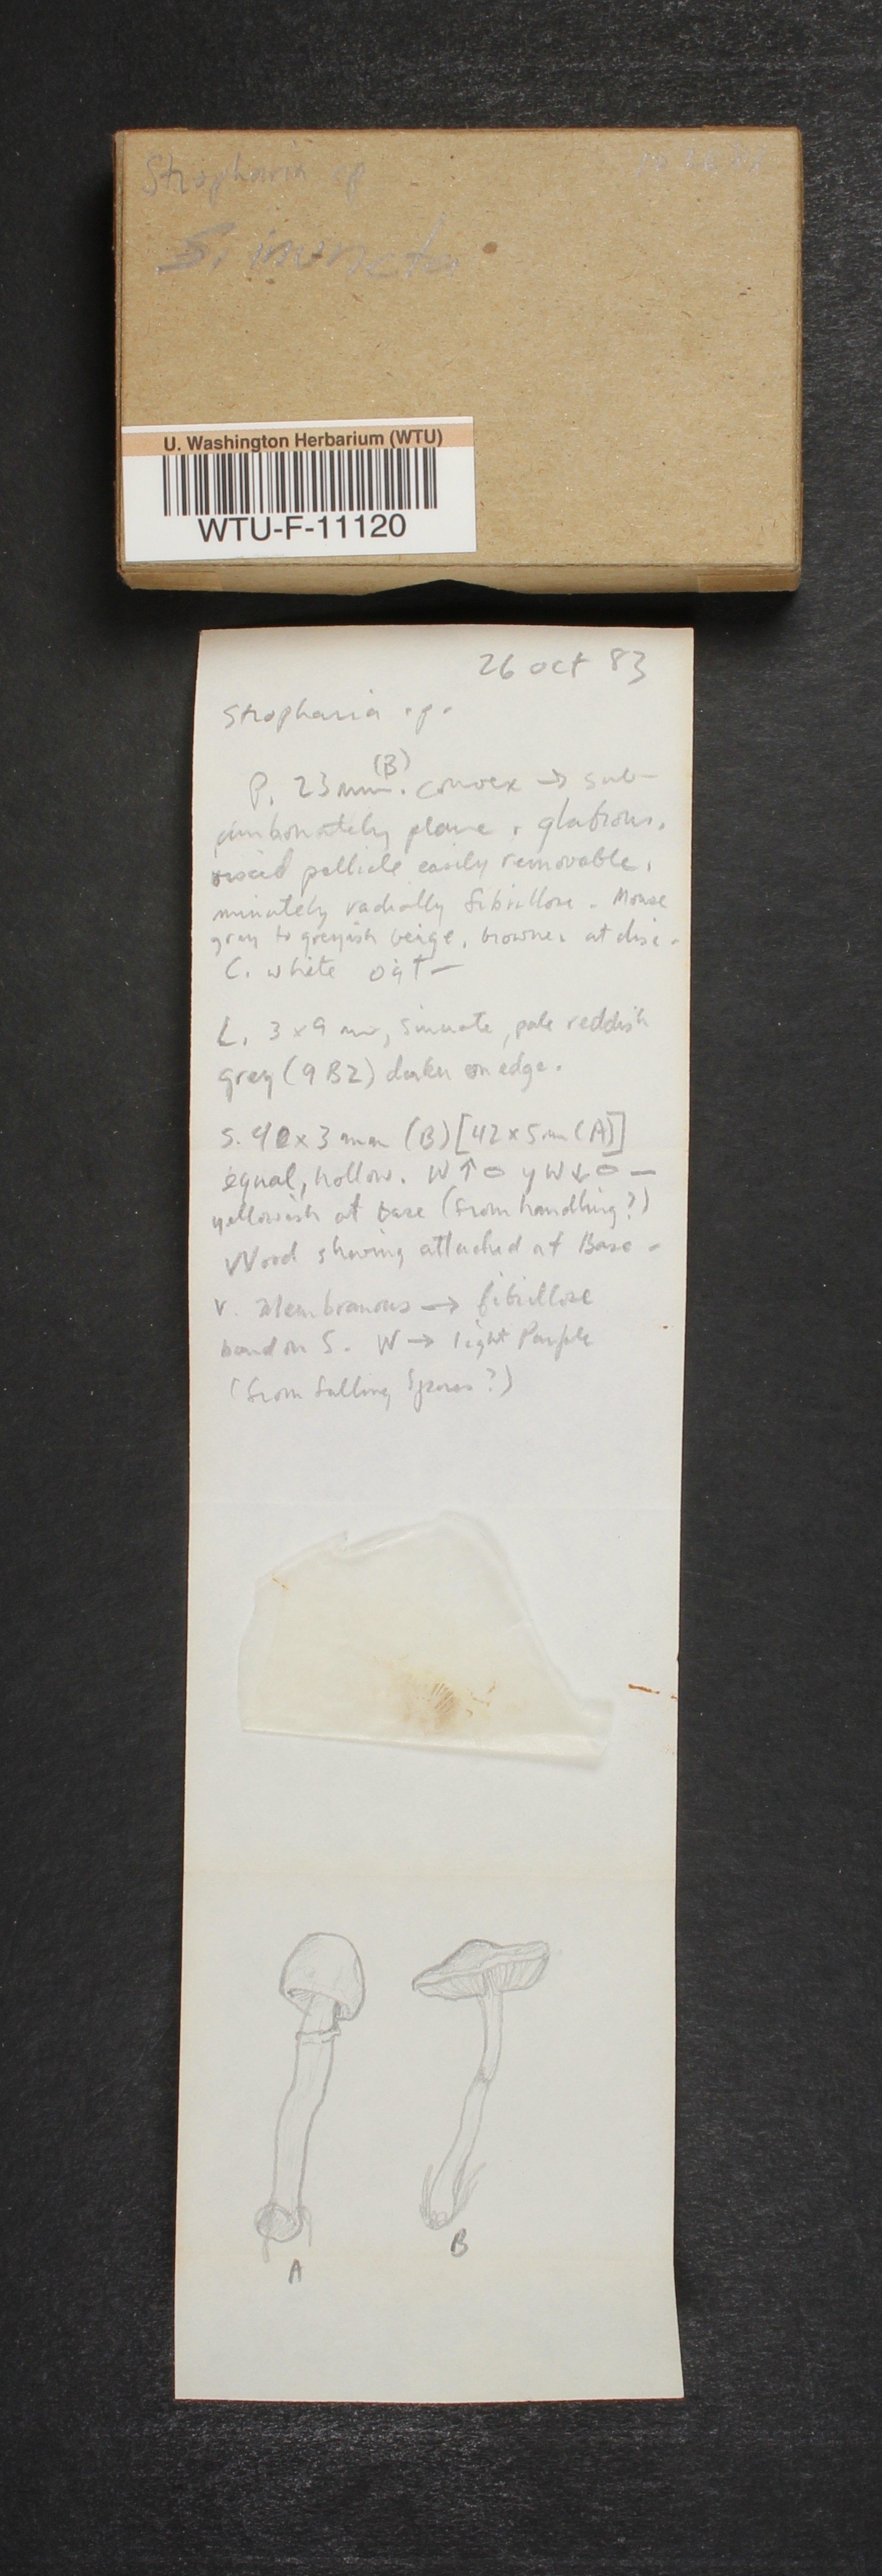 Stropharia sp
S. inuncta
U. Washington Herbarium (WTU)
WTU-F-11120
26 oct 83
Stropharia sp.
(B)
P. 23 mm. convex → sub-
umbonately plane, glabrous,
viscid pellicle easily removable,
minutely radially fibrillose. Mouse
gray to greyish beige, browner at disc.
C. white
L. 3 x 9 mm, sinuate, pale reddish
grey (9B2) darker on edge.
S. 40 x 3 mm (B) [42 x 5 mm (A)]
equal, hollow. W ↑ o y W ↓ o —
yellowish at base (from handling?)
Wood shaving attached at Base -
V. Membranous → fibrillose
band on S. W → light Purple
(from falling spores?)
A
B